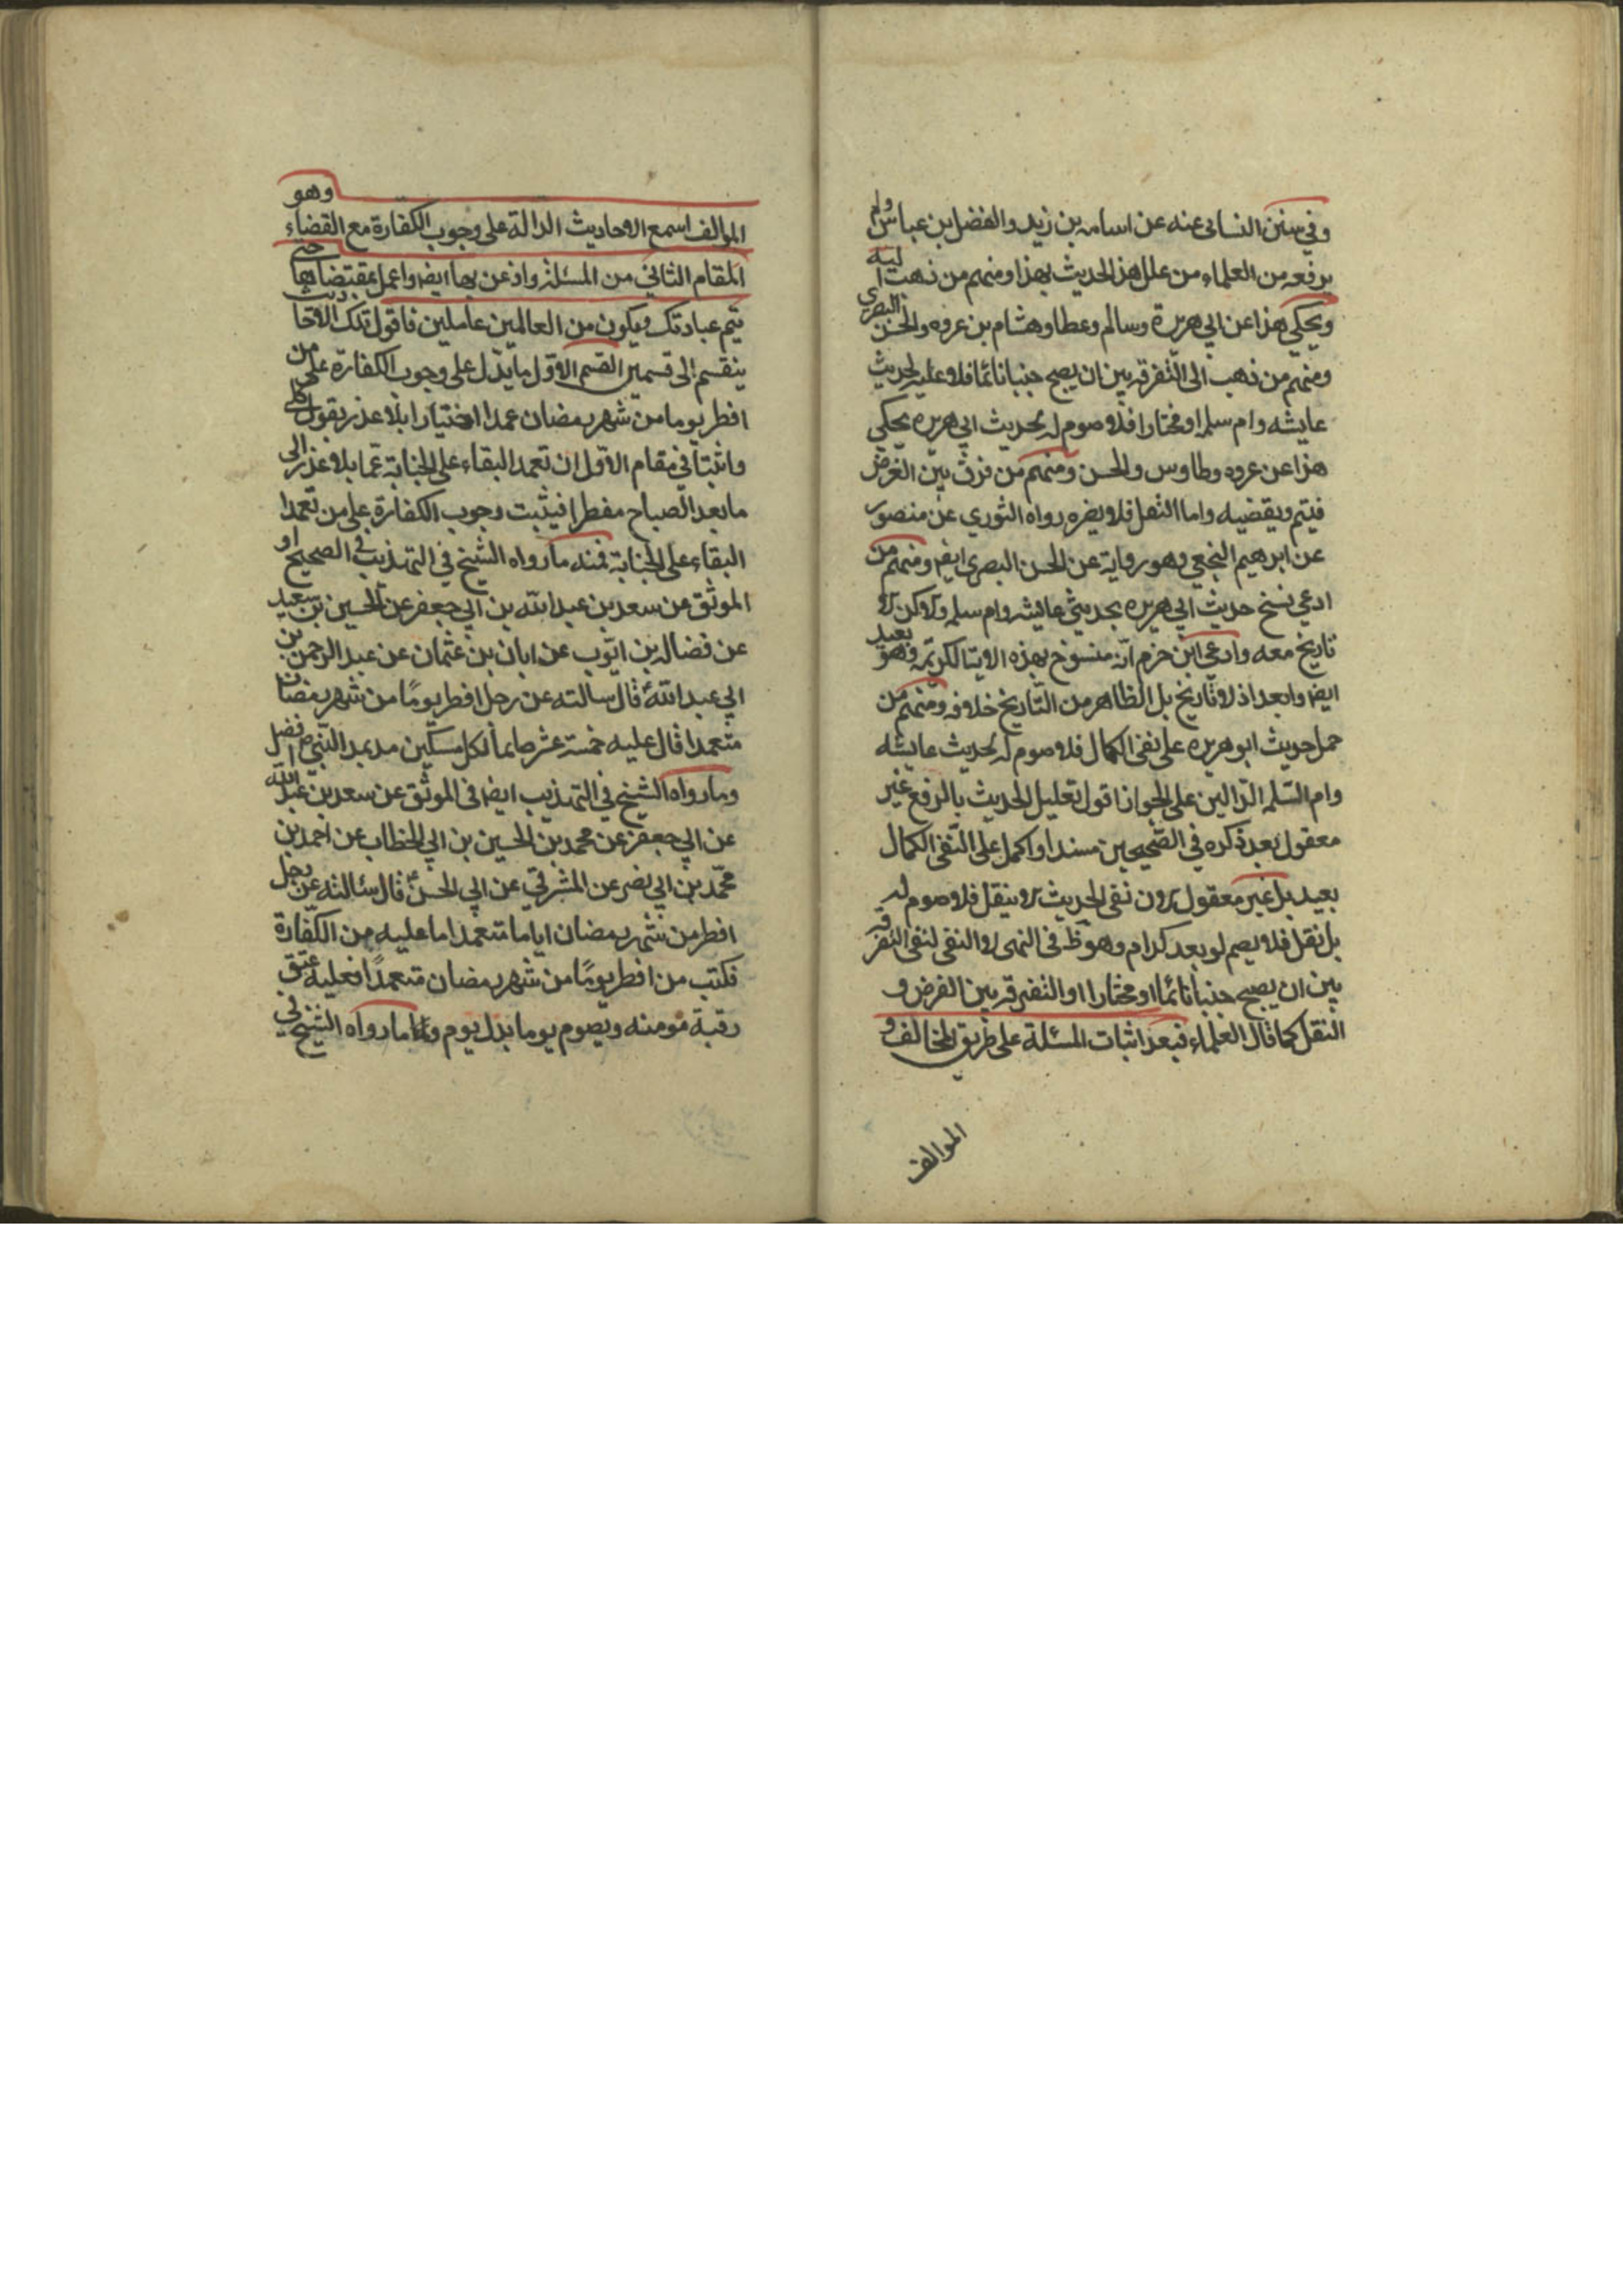 وفي سنن النسائي عنه عن اسامه بن زيد والفضل بن عباس ولم
يرفعه من العلماء من علل هذ الحديث بهذا ومنهم من ذهب اليه
ويحكي هذا عن ابي هريرة وسالم وعطا وهشام بن عروه والحسن البصري
ومنهم من ذهب الى التفرقه بين ان يصبح جنبا نائما فلا عليه لحديث
عايشه وام سلمه او مختارا فلا صوم له لحديث ابي هريره يحكي
هذا عن عروه وطاوس والحسن ومنهم من فرق بين الفرض
فيتم ويقضيه واما النفل فلا يضره رواه الثوري عن منصور
عن ابرهيم النخعي وهو رواية عن الحسن البصري ايض ومنهم من
ادعي نسخ حديث ابي هريره بحديثي عايشه وام سلمه ولاكن لا
تاريخ معه وادعي ابن حزم انه منسوخ بهذه الايتا لكريمه وهو بعيد
ايض وابعد اذ لا تاريخ بل الظاهر من التاريخ خلافه ومنهم من
حمل حديث ابو هريره على نفى الكمال فلا صوم له لحديث عايشه
وام السلمه الدالين على الجواز اقول تعليل الحديث بالرفع غير
معقول بعد ذكره في الصحيحين مسندا والحمل على النفى الكمال
بعيد بل غير معقول لان نفى الحديث لا ينقل فلا صوم له
بل نقل فلا يصم لو بعد كدام وهو ظ في النهى لا النفى لنفى التفرقه
بين ان يصبح جنبا نائما او مختارا او التفرقه بين الفرض و
النفل كما قال العلماء فبعد اثبات المسئلة على طريق المخالف و
الموالف
وهو
الموالف اسمع الاحاديث الدالة على وجوب الكفارة مع القضاء
المقام الثاني من المسئلة واذعن بها ايض واعمل بمقتضاها حتى
يتم عبادتك ويكون من العالمين عاملين فاقول تلك الاحاديث
ينقسم الى قسمين القسم الاول ما يدل على وجوب الكفارة على من
افطر يوما من شهر رمضان عمدا اختيارا بلا عذر بقول كلى
واثبتا في مقام الاول ان تعمد البقاء على الجنابة عما بلا عذر الى
ما بعد الصباح مفطرا فيثبت وجوب الكفارة على من تعمدا
البقاء على الجنابة فمنه ما رواه الشيخ في التهذيب في الصحيح او
الموثق عن سعد بن عبد الله بن ابي جعفر عن الحسين بن سعيد
عن فضاله بن ايوب عن ابان بن عثمان عن عبد الرحمن بن
ابي عبد الله قال سالته عن رجل افطر يوما من شهر رمضان
متعمدا قال عليه خمسة عشر صاعا لكل مسكين مد بمد النبي ص افضل
وما رواه الشيخ في التهذيب ايض في الموثق عن سعد بن عبد الله
عن ابي جعفر عن محمد بن الحسين بن ابي الخطاب عن احمد بن
محمد بن ابي نصر عن المشرقي عن ابي الحسن قال سئالته عن رجل
افطر من شهر رمضان اياما متعمدا ما عليه من الكفارة
فكتب من افطر يوما من شهر رمضان متعمدا فعليه عتق
رقبة مومنه ويصوم يوما بدل يوم واما ما رواه الشيخ في